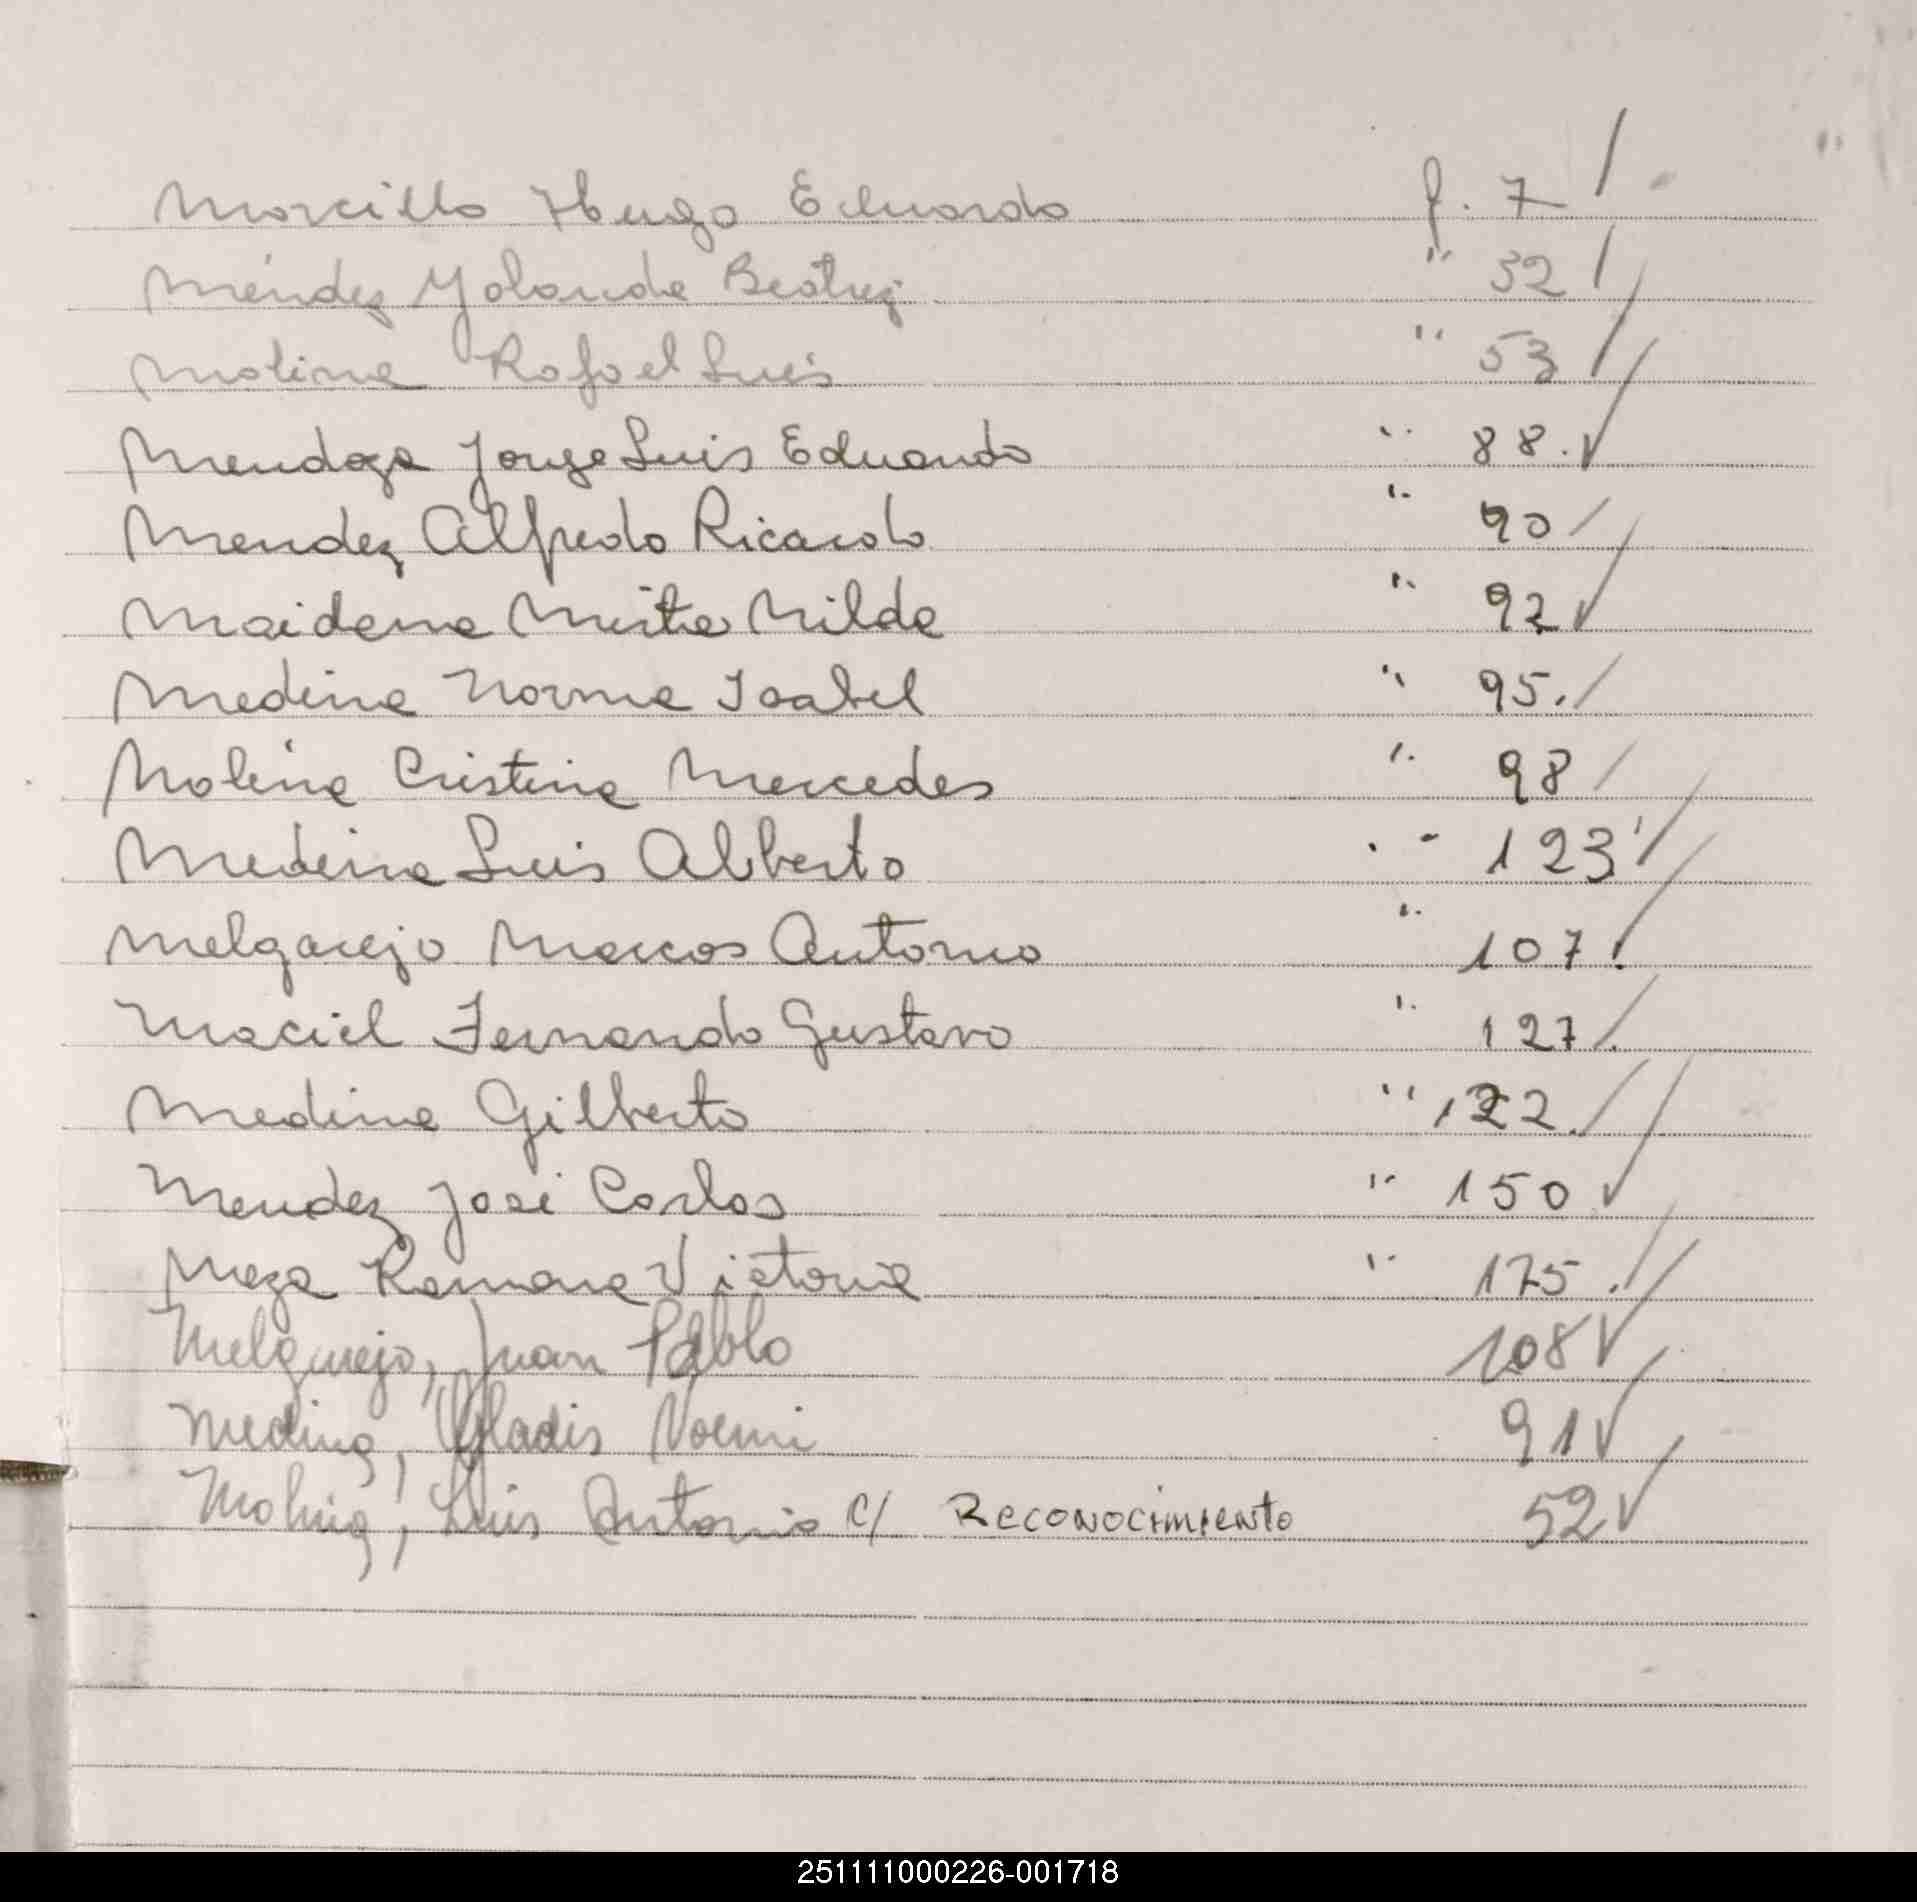 Morcillo Hugo Eduardo f. 7
Méndez Yolanda Beatriz " 32
Molina Rafael Luis " 53
Mendoza Jorge Luis Eduardo " 88.
Mendez Alfredo Ricardo " 90
Maidana Mirta Nilda " 92
Medina Norma Isabel " 95.
Molina Cristina Mercedes " 98
Medina Luis Alberto " 123
Melgarejo Marcos Antonio " 107.
Maciel Fernando Gustavo " 127.
Medina Gilberto " 122.
Mendez José Carlos " 150
Meza Ramona Victoria " 175.
Melgarejo, Juan Pablo 108
Medina, Gladis Noemi 91
Molina, Luis Antonio c/ Reconocimiento 52
251111000226-001718